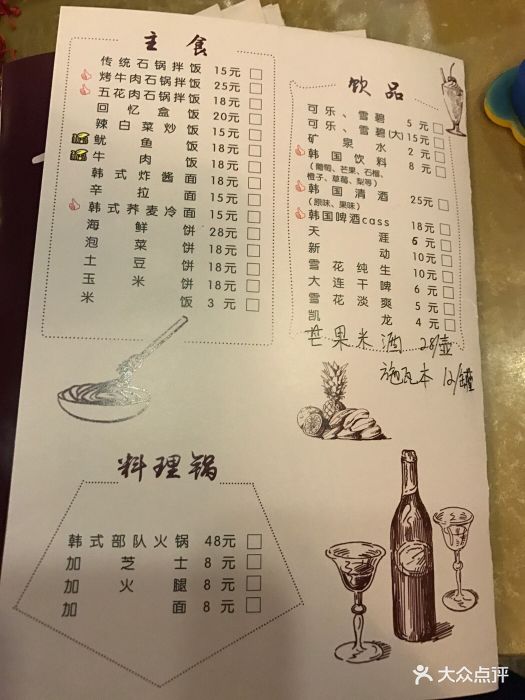 主食
传统石锅拌饭 15元
烤牛肉石锅拌饭 25元
五花肉石锅拌饭 18元
回忆盒饭 20元
辣白菜炒饭 15元
鱿鱼饭 18元
牛肉饭 18元
韩式炸酱面 18元
辛拉面 15元
韩式荞麦冷面 15元
海鲜饼 28元
泡菜饼 18元
土豆饼 18元
玉米饼 18元
米饭 3元
饮品
可乐、雪碧 5元
可乐、雪碧(大) 15元
矿泉水 2元
韩国饮料 8元
(葡萄、芒果、石榴、
橙子、草莓、梨等)
韩国清酒 25元
(原味、果味)
韩国啤酒cass 18元
天涯 6元
新动 10元
雪花纯生 10元
大连干啤 6元
雪花淡爽 5元
凯龙 4元
芒果米酒 28/壶
施瓦本 12/罐
料理锅
韩式部队火锅 48元
加芝士 8元
加火腿 8元
加面 8元
大众点评